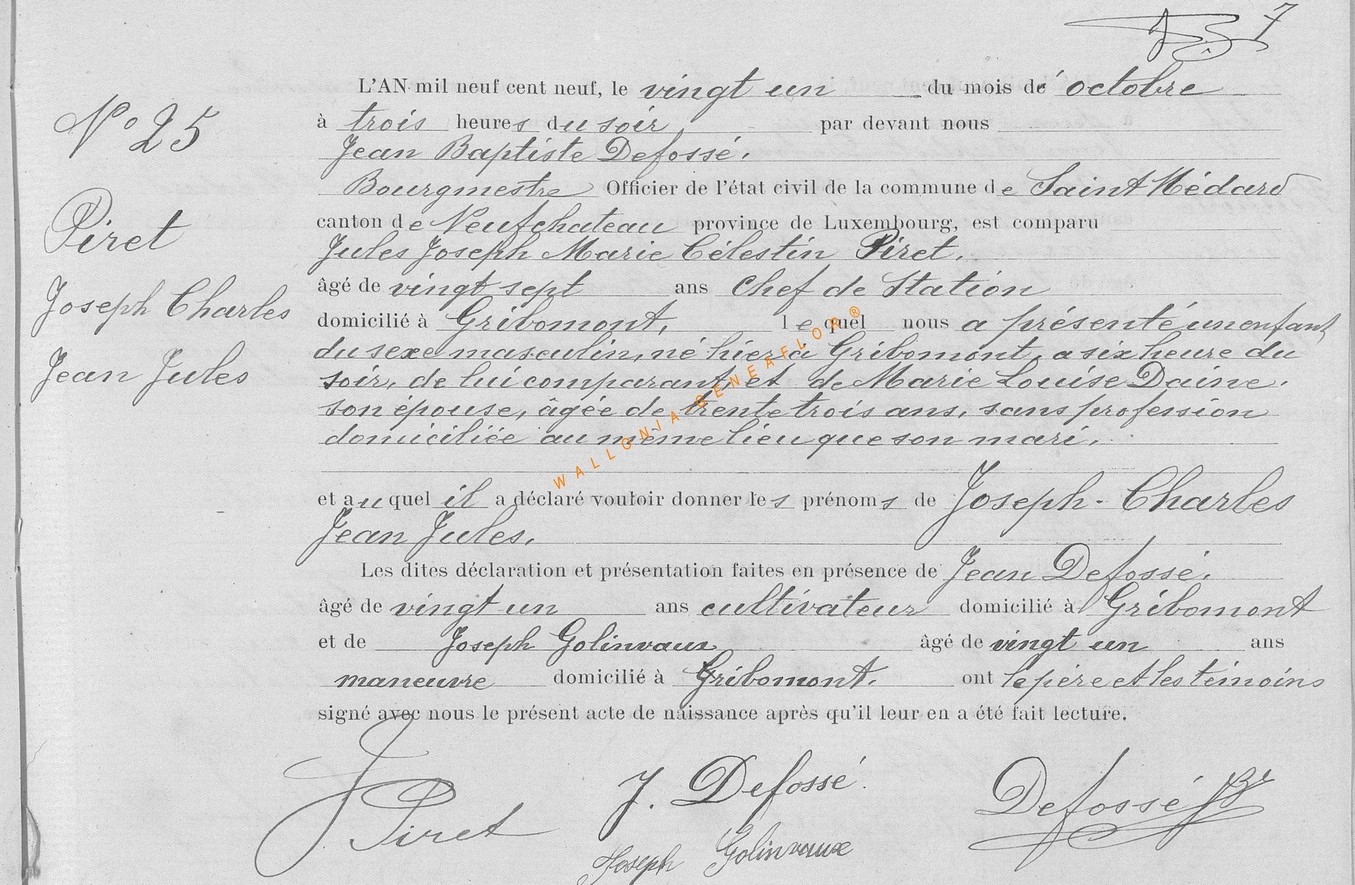 7
L'AN mil neuf cent neuf, le vingt un du mois de octobre
à trois heures du soir par devant nous
Jean Baptiste Defossé.
Bourgmestre Officier de l'état civil de la commune de Saint Médard
canton de Neufchateau province de Luxembourg, est comparu
Jules Joseph Marie Célestin Piret.
âgé de vingt sept ans Chef de Station
domicilié à Gribomont, lequel nous a présenté un enfant
du sexe masculin, né hier à Gribomont, a six heure du
soir, de lui comparant et de Marie Louise Daine.
son épouse, âgée de trente trois ans, sans profession
domiciliée au même lieu que son mari.
et auquel il a déclaré vouloir donner les prénoms de Joseph-Charles
Jean Jules.
Les dites déclaration et présentation faites en présence de Jean Defossé.
âgé de vingt un ans cultivateur domicilié à Gribomont
et de Joseph Golinvaux âgé de vingt un ans
maneuvre domicilié à Gribomont. ont le père et les témoins
signé avec nous le présent acte de naissance après qu'il leur en a été fait lecture.
N° 25
Piret
Joseph Charles
Jean Jules
WALLONIA GENEAFLOR ®
J Piret
J. Defossé.
Defossé JB
Joseph Golinvaux